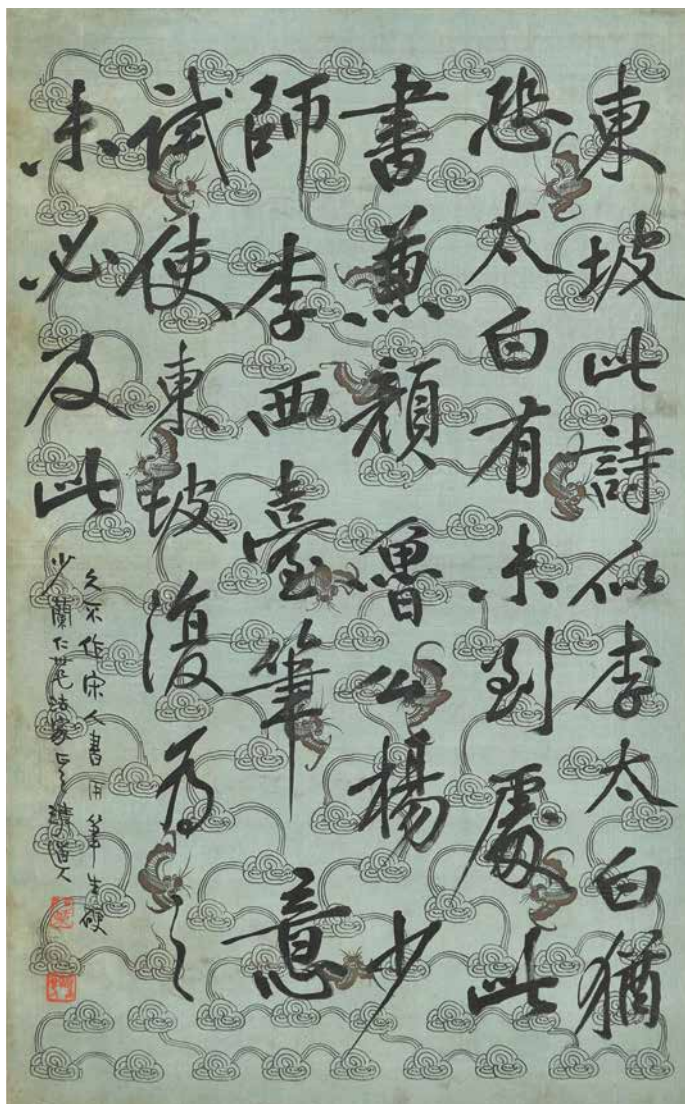 東坡此詩似李太白猶
恐太白有未到處此
書兼顏魯公楊少
師李西臺筆意
試使東坡復為之
未必及此
久不作宋人書用筆生硬
少蘭仁兄法家正之 清道人